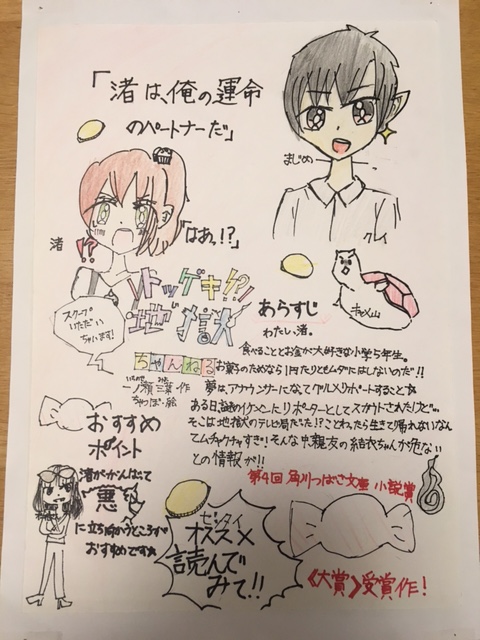 「渚は、俺の運命
のパートナーだ」
まじめ
クノイ
渚
!?
「はあ!?」
スクープ
いただい
ちゃいます!
ドッゲキ!?!!
地獄
ちゃんねる
一ノ瀬三葉・作
ちゃつぼ・絵
キャメ山
あらすじ
わたし、渚。
食べることとお金が大好きな小学5年生。
お菓子のためなら1円たりともムダにはしないのだ!
夢は、アナウンサーになってグルメリポートすること☆
ある日、謎のイケメンにリポーターとしてスカウトされたけど…
そこは地獄のテレビ局だった!?ことわったら生きて帰れないなん
てムチャクチャすぎ!そんな中、親友の結衣ちゃんが危ない
との情報が!!
おすすめ
ポイント
渚ががんばって
悪
に立ち向かうところが
おすすめです☆
ゼッタイ
オススメ
読んで
みて!!
第4回 角川つばさ文庫 小説賞
《大賞》受賞作!